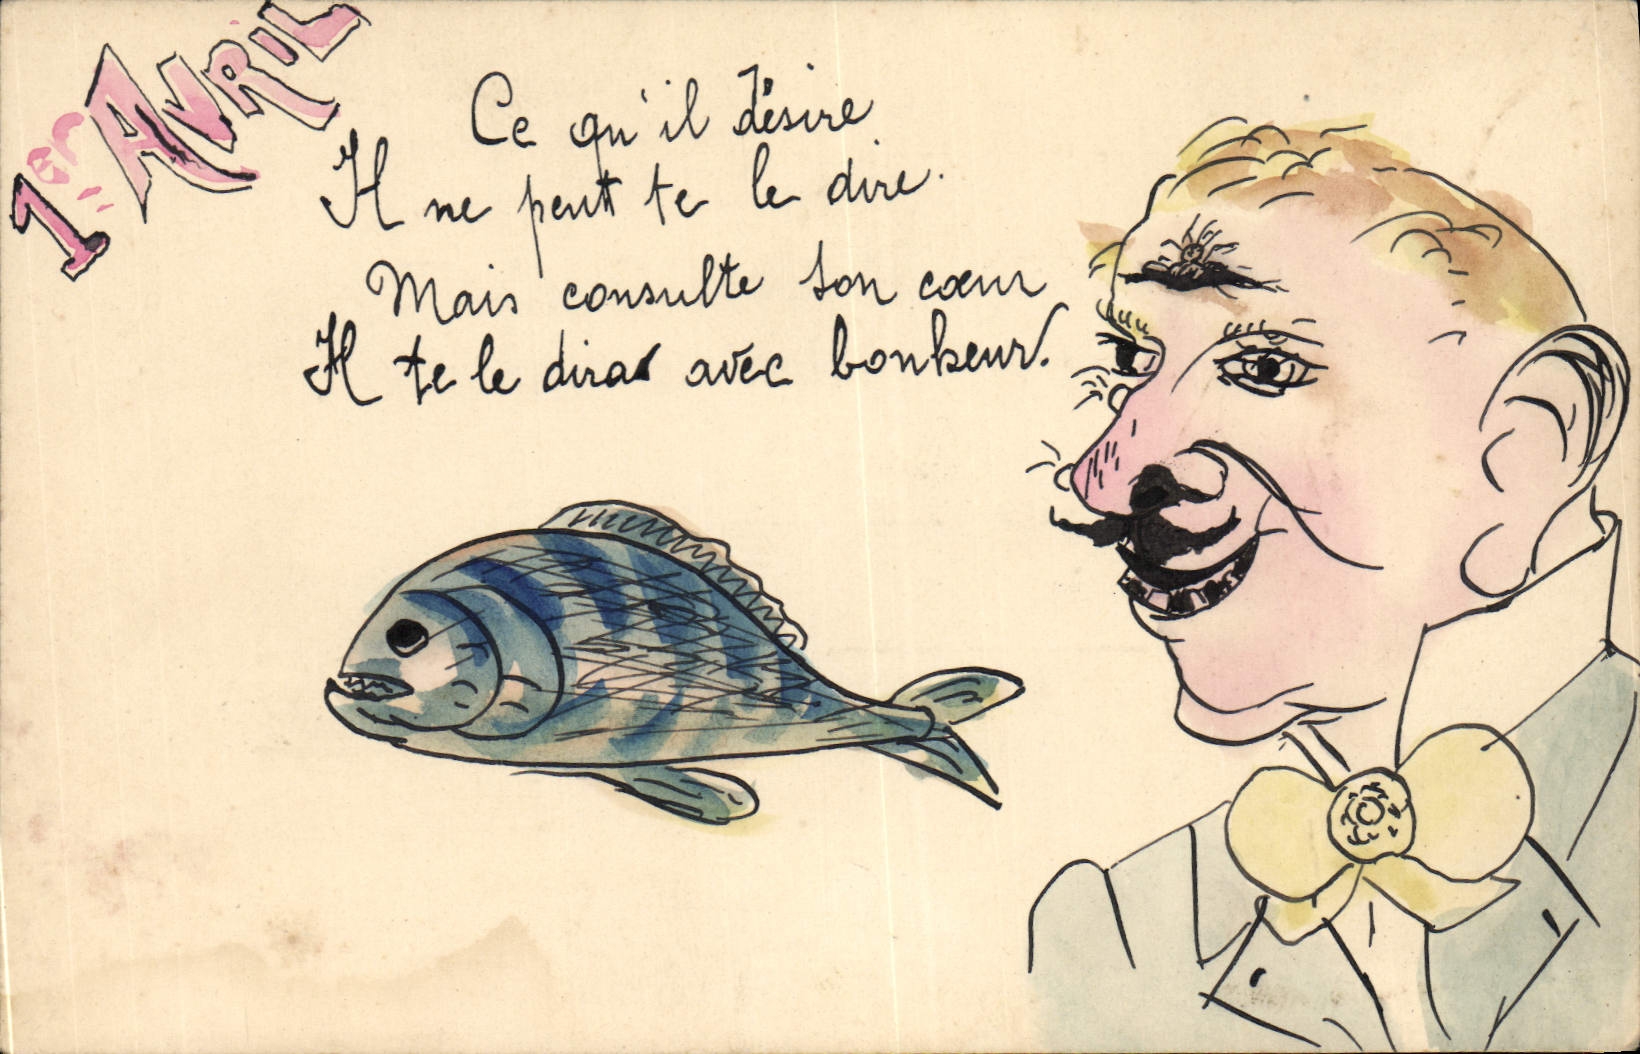 1er AVRIL
Ce qu'il désire
Il ne peut te le dire.
Mais consulte son cœur
Il te le dira avec bonheur.